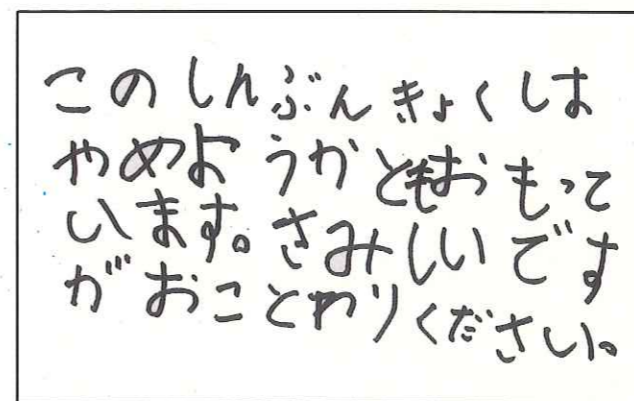 このしんぶんきょくしは
やめようかともおもって
います。さみしいです
がおことわりください。